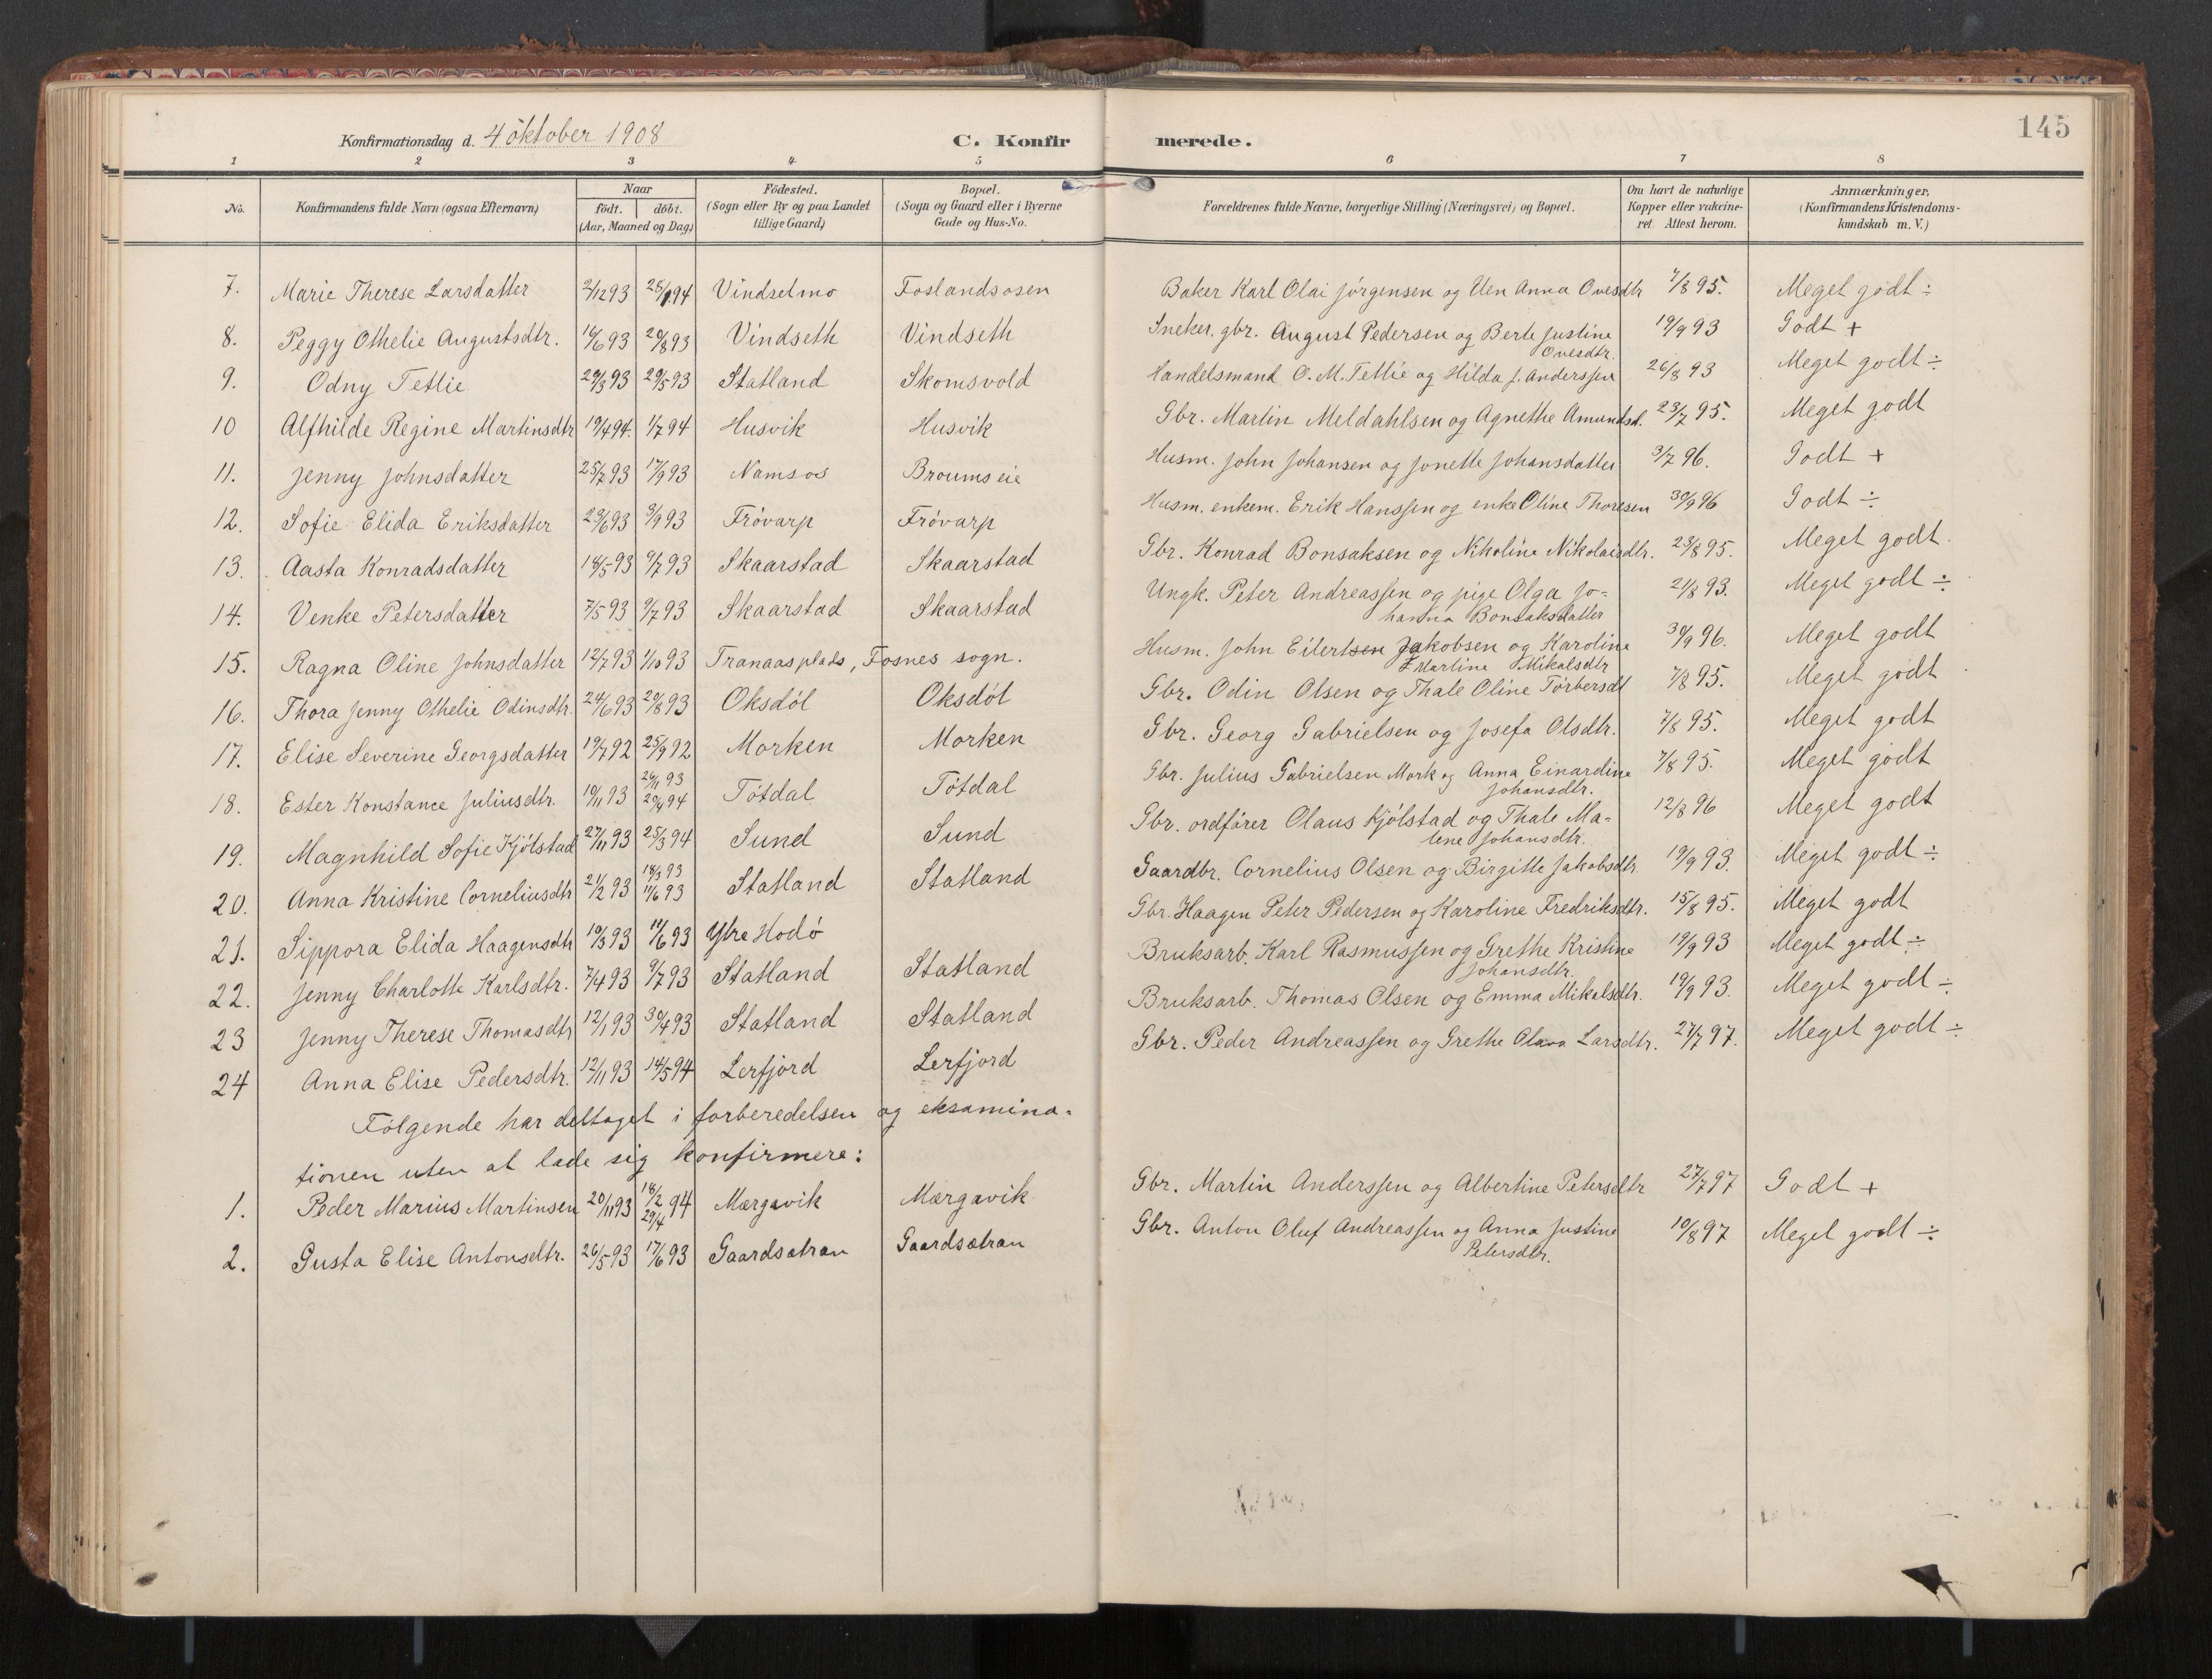 145
Konfirmationsdag d. 4 oktober 1908 C. Konfirmerede.
1 2 3 4 5 6 7 8
No. Konfirmandens fulde Navn (ogsaa Efternavn) Naar födt. döbt. (Aar, Maaned og Dag) Födested. (Sogn eller By og paa Landet tillige Gaard) Bopæl. (Sogn og Gaard eller i Byerne Gade og Hus-No. Forældrenes fulde Navne, borgerlige Stilling (Næringsvei) og Bopæl. Om havt de naturlige Kopper eller vakcineret. Attest herom. Anmærkninger, (Konfirmandens Kristendomskundskab m. V.)
7. Marie Therese Larsdatter 2/12 93 25/1 94 Vindsetmo Foslandsosen Baker Karl Olai Jørgensen og Anna Ovesdtr 7/8 95. Meget godt ÷
8. Peggy Othelie Augustsdtr. 16/6 93 20/8 93 Vindseth Vindseth Sneker. gbr. August Pedersen og Berte Justine Ovesdtr. 19/9 93 Godt +
9. Odny Tetlie 29/3 93 29/5 93 Statland Skomsvold Handelsmand O. M. Tetlie og Hilda J. Anderssen 26/8 93 Meget godt ÷
10 Alfhilde Regine Martinsdtr 19/4 94. 1/7 94 Husvik Husvik Gbr. Martin Meldahlsen og Agnethe Amundsd. 23/7 95. Meget godt
11. Jenny Johnsdatter 25/7 93 17/9 93 Namsos Broums eie Husm. John Johansen og Jonette Johansdatter 3/7 96. Godt +
12. Sofie Elida Eriksdatter 23/6 93 3/9 93 Frövarp Frövarp Husm. enkem. Erik Hanssen og enke Oline Thoresen 30/9 96 Godt ÷
13. Aasta Konradsdatter 14/5 93 9/7 93 Skaarstad Skaarstad Gbr. Konrad Bonsaksen og Nikoline Nikolaisdtr. 23/8 95. Meget godt.
14. Venke Petersdatter 7/5 93 9/7 93 Skaarstad Skaarstad Ungk. Peter Andreassen og pige Olga Johanna Bonsaksdatter 21/8 93. Meget godt ÷
15. Ragna Oline Johnsdatter 12/7 93 1/10 93 Tranaasplads, Fosnes sogn. Husm. John Eilertsen Jakobsen og Karoline Martine Mikalsdtr 30/9 96. Meget godt
16. Thora Jenny Othelie Odinsdtr. 24/6 93 20/8 93 Oksdöl Oksdöl Gbr. Odin Olsen og Thale Oline Torbersdt 7/8 95. Meget godt
17. Elise Severine Georgsdatter 19/7 92 25/9 92 Morken Morken Gbr. Georg Gabrielsen og Josefa Olsdtr. 7/8 95. Meget godt
18. Ester Konstance Juliusdtr. 10/11 93 26/11 93 29/4 94 Tötdal Tötdal Gbr. Julius Gabrielsen Mork og Anna Einardine Johansdtr. 7/8 95. Meget godt
19. Magnhild Sofie Kjölstad 27/11 93 25/3 94 Sund Sund Gbr. ordfører Olaus Kjölstad og Thale Malene Johansdtr. 12/8 96 Meget godt
20. Anna Kristine Corneliusdtr 21/2 93 18/3 93 11/6 93 Statland Statland Gaardbr. Cornelius Olsen og Birgitte Jakobsdtr. 19/9 93. Meget godt ÷
21. Sippora Elida Haagensdtr 10/3 93 11/6 93 Ytre Hodö Gbr. Haagen Peter Pedersen og Karoline Fredriksdtr. 15/8 95. Meget godt
22. Jenny Charlotte Karlsdtr. 7/4 93 9/7 93 Statland Statland Bruksarb. Karl Rasmussen og Grethe Kristine Johansdtr. 19/9 93 Meget godt ÷
23 Jenny Therese Thomasdtr 12/1 93 30/4 93 Statland Statland Bruksarb. Thomas Olsen og Emma Mikalsdtr. 19/9 93. Meget godt ÷
24 Anna Elise Pedersdtr. 12/11 93 14/5 94 Lerfjord Lerfjord Gbr. Peder Andreassen og Grethe Olava Larsdtr. 27/7 97. Meget godt ÷
Følgende har deltaget i forberedelsen og eksamina-
tionen uten at lade sig konfirmere:
1. Peder Marius Martinsen 20/11 93 18/2 29/4 94 Mærgavik Mærgavik Gbr. Martin Anderssen og Albertine Petersdtr 27/7 97 Godt +
2. Gusta Elise Antonsdtr. 26/5 93 17/6 93 Gaardsætran Gaardsætran Gbr. Anton Oluf Andreassen og Anna Justine Petersdtr. 10/8 97 Meget godt ÷